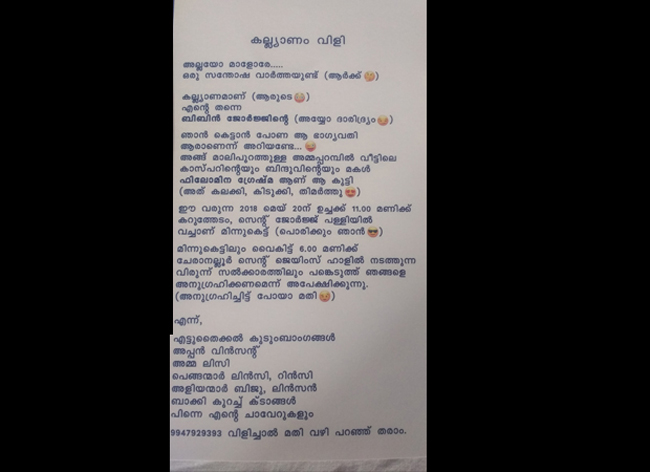 കല്ല്യാണം വിളി
അല്ലയോ മാളോരേ.....
ഒരു സന്തോഷ വാർത്തയുണ്ട് (ആർക്ക് 🤔)
കല്ല്യാണമാണ് (ആരുടെ 😜)
എന്റെ തന്നെ
ബിബിൻ ജോർജ്ജിന്റെ (അയ്യോ ദാരിദ്ര്യം 😜)
ഞാൻ കെട്ടാൻ പോണ ആ ഭാഗ്യവതി
ആരാണെന്ന് അറിയണ്ടേ... 😜
അങ്ങ് മാലിപുറത്തുള്ള അമ്മപ്പറമ്പിൽ വീട്ടിലെ
കാസ്പറിന്റെയും ബിന്ദുവിന്റെയും മകൾ
ഫിലോമിന ഗ്രേഷ്മ ആണ് ആ കുട്ടി
(അത് കലക്കി, കിടുക്കി, തിമർത്തു 😍)
ഈ വരുന്ന 2018 മെയ് 20ന് ഉച്ചക്ക് 11.00 മണിക്ക്
കറുത്തേടം, സെന്റ് ജോർജ്ജ് പള്ളിയിൽ
വച്ചാണ് മിന്നുകെട്ട് (പൊരിക്കും ഞാൻ 😎)
മിന്നുകെട്ടിലും വൈകിട്ട് 6.00 മണിക്ക്
ചേരാനല്ലൂർ സെന്റ് ജെയിംസ് ഹാളിൽ നടത്തുന്ന
വിരുന്ന് സൽക്കാരത്തിലും പങ്കെടുത്ത് ഞങ്ങളെ
അനുഗ്രഹിക്കണമെന്ന് അപേക്ഷിക്കുന്നു.
(അനുഗ്രഹിച്ചിട്ട് പോയാ മതി 😜)
എന്ന്,
എട്ടുതൈക്കൽ കുടുംബാംഗങ്ങൾ
അപ്പൻ വിൻസന്റ്
അമ്മ ലിസി
പെങ്ങന്മാർ ലിൻസി, റിൻസി
അളിയന്മാർ ബിജു, ലിൻസൻ
ബാക്കി കുറച്ച് ക്ടാങ്ങൾ
പിന്നെ എന്റെ ചാവേറുകളും
9947929393 വിളിച്ചാൽ മതി വഴി പറഞ്ഞ് തരാം.